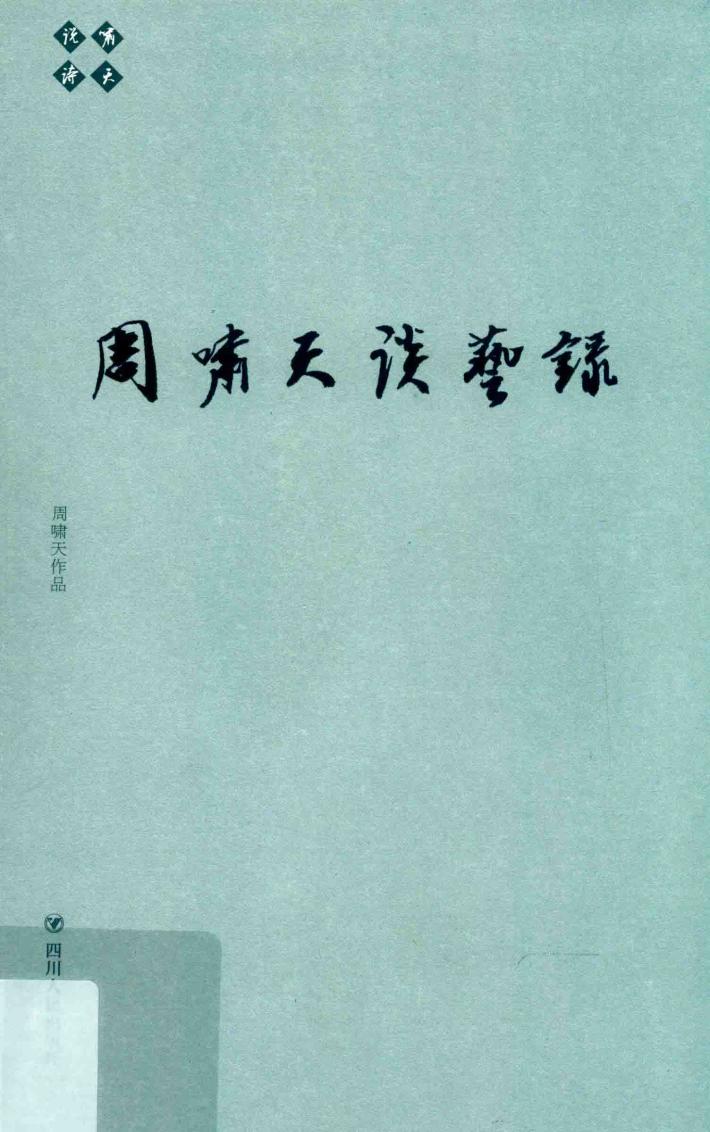 啸天
说诗
周啸天谈藝録
周啸天作品
四川人